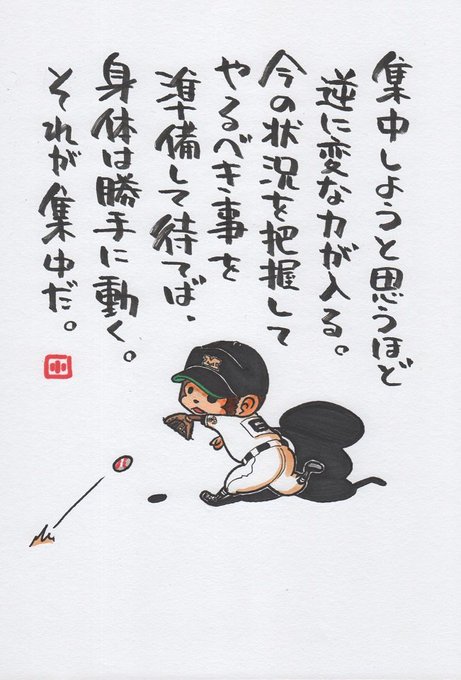 集中しようと思うほど
逆に変な力が入る。
今の状況を把握して
やるべき事を
準備して待てば、
身体は勝手に動く。
それが集中だ。